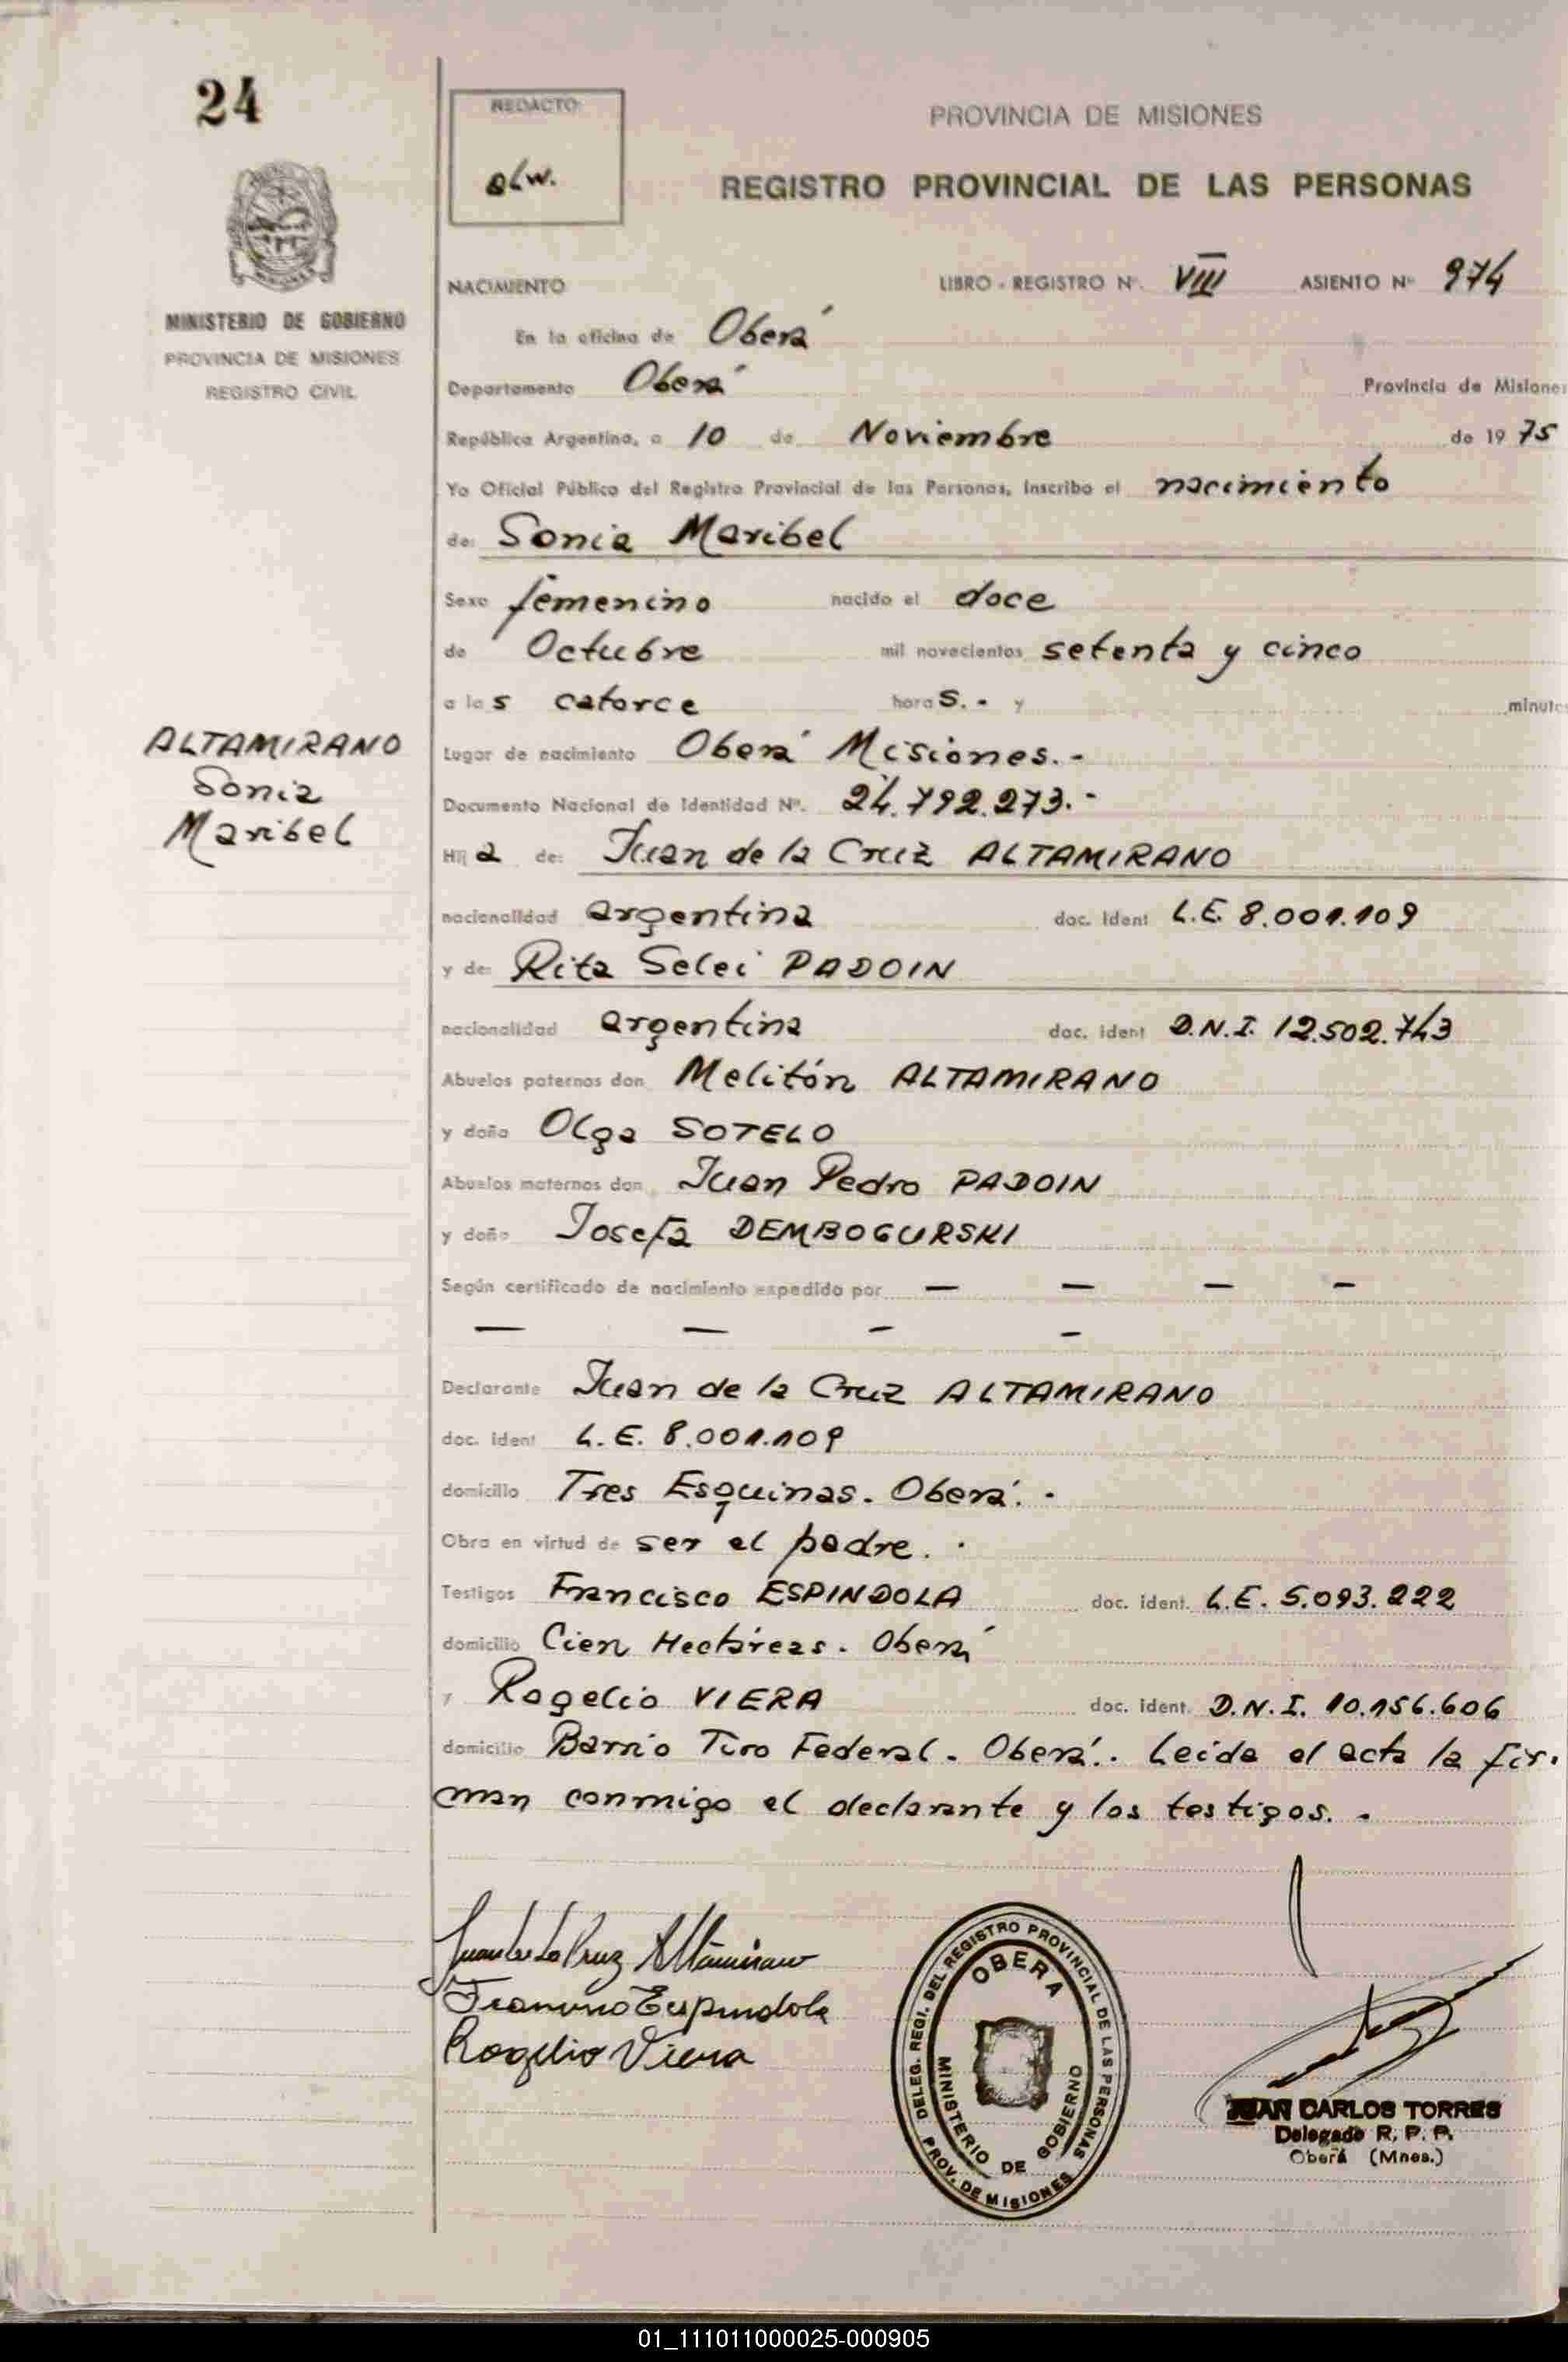 24
REDACTO:
PROVINCIA DE MISIONES
REGISTRO PROVINCIAL DE LAS PERSONAS
MINISTERIO DE GOBIERNO
PROVINCIA DE MISIONES
REGISTRO CIVIL
NACIMIENTO LIBRO - REGISTRO Nº. VIII ASIENTO Nº 974
En la oficina de Oberá
Departamento Oberá Provincia de Misiones
República Argentina, a 10 de Noviembre de 19 75
Yo Oficial Público del Registro Provincial de las Personas, inscribo el nacimiento
de: Sonia Maribel
Sexo femenino nacido el doce
de Octubre mil novecientos setenta y cinco
a las catorce horas.- y minutos
ALTAMIRANO
Sonia
Maribel
Lugar de nacimiento Oberá Misiones.-
Documento Nacional de Identidad Nº. 24.792.273.-
Hija de: Juan de la Cruz ALTAMIRANO
nacionalidad argentina doc. ident L.E. 8.001.109
y de: Rita Selei PADOIN
nacionalidad argentina doc. ident D.N.I. 12.502.743
Abuelos paternos don Melitón ALTAMIRANO
y doña Olga SOTELO
Abuelos maternos don Juan Pedro PADOIN
y doña Josefa DEMBOGURSKI
Según certificado de nacimiento expedido por — — — —
— — — —
Declarante Juan de la Cruz ALTAMIRANO
doc. ident L.E. 8.001.109
domicilio Tres Esquinas. Oberá.-
Obra en virtud de ser el padre.-
Testigos Francisco ESPINDOLA doc. ident. L.E. 5.093.222
domicilio Cien Hectáreas. Oberá
y Rogelio VIERA doc. ident. D.N.I. 10.156.606
domicilio Barrio Tiro Federal. Oberá.. Leída el acta la fir-
man conmigo el declarante y los testigos.-
Juan de La Cruz Altamirano
Francisco Espindola
Rogelio Viera
DELEG. REGI. DEL REGISTRO PROVINCIAL DE LAS PERSONAS
OBERA
MINISTERIO DE GOBIERNO
PROV. DE MISIONES
JUAN CARLOS TORRES
Delegado R. P. P.
Oberá (Mnes.)
01_111011000025-000905